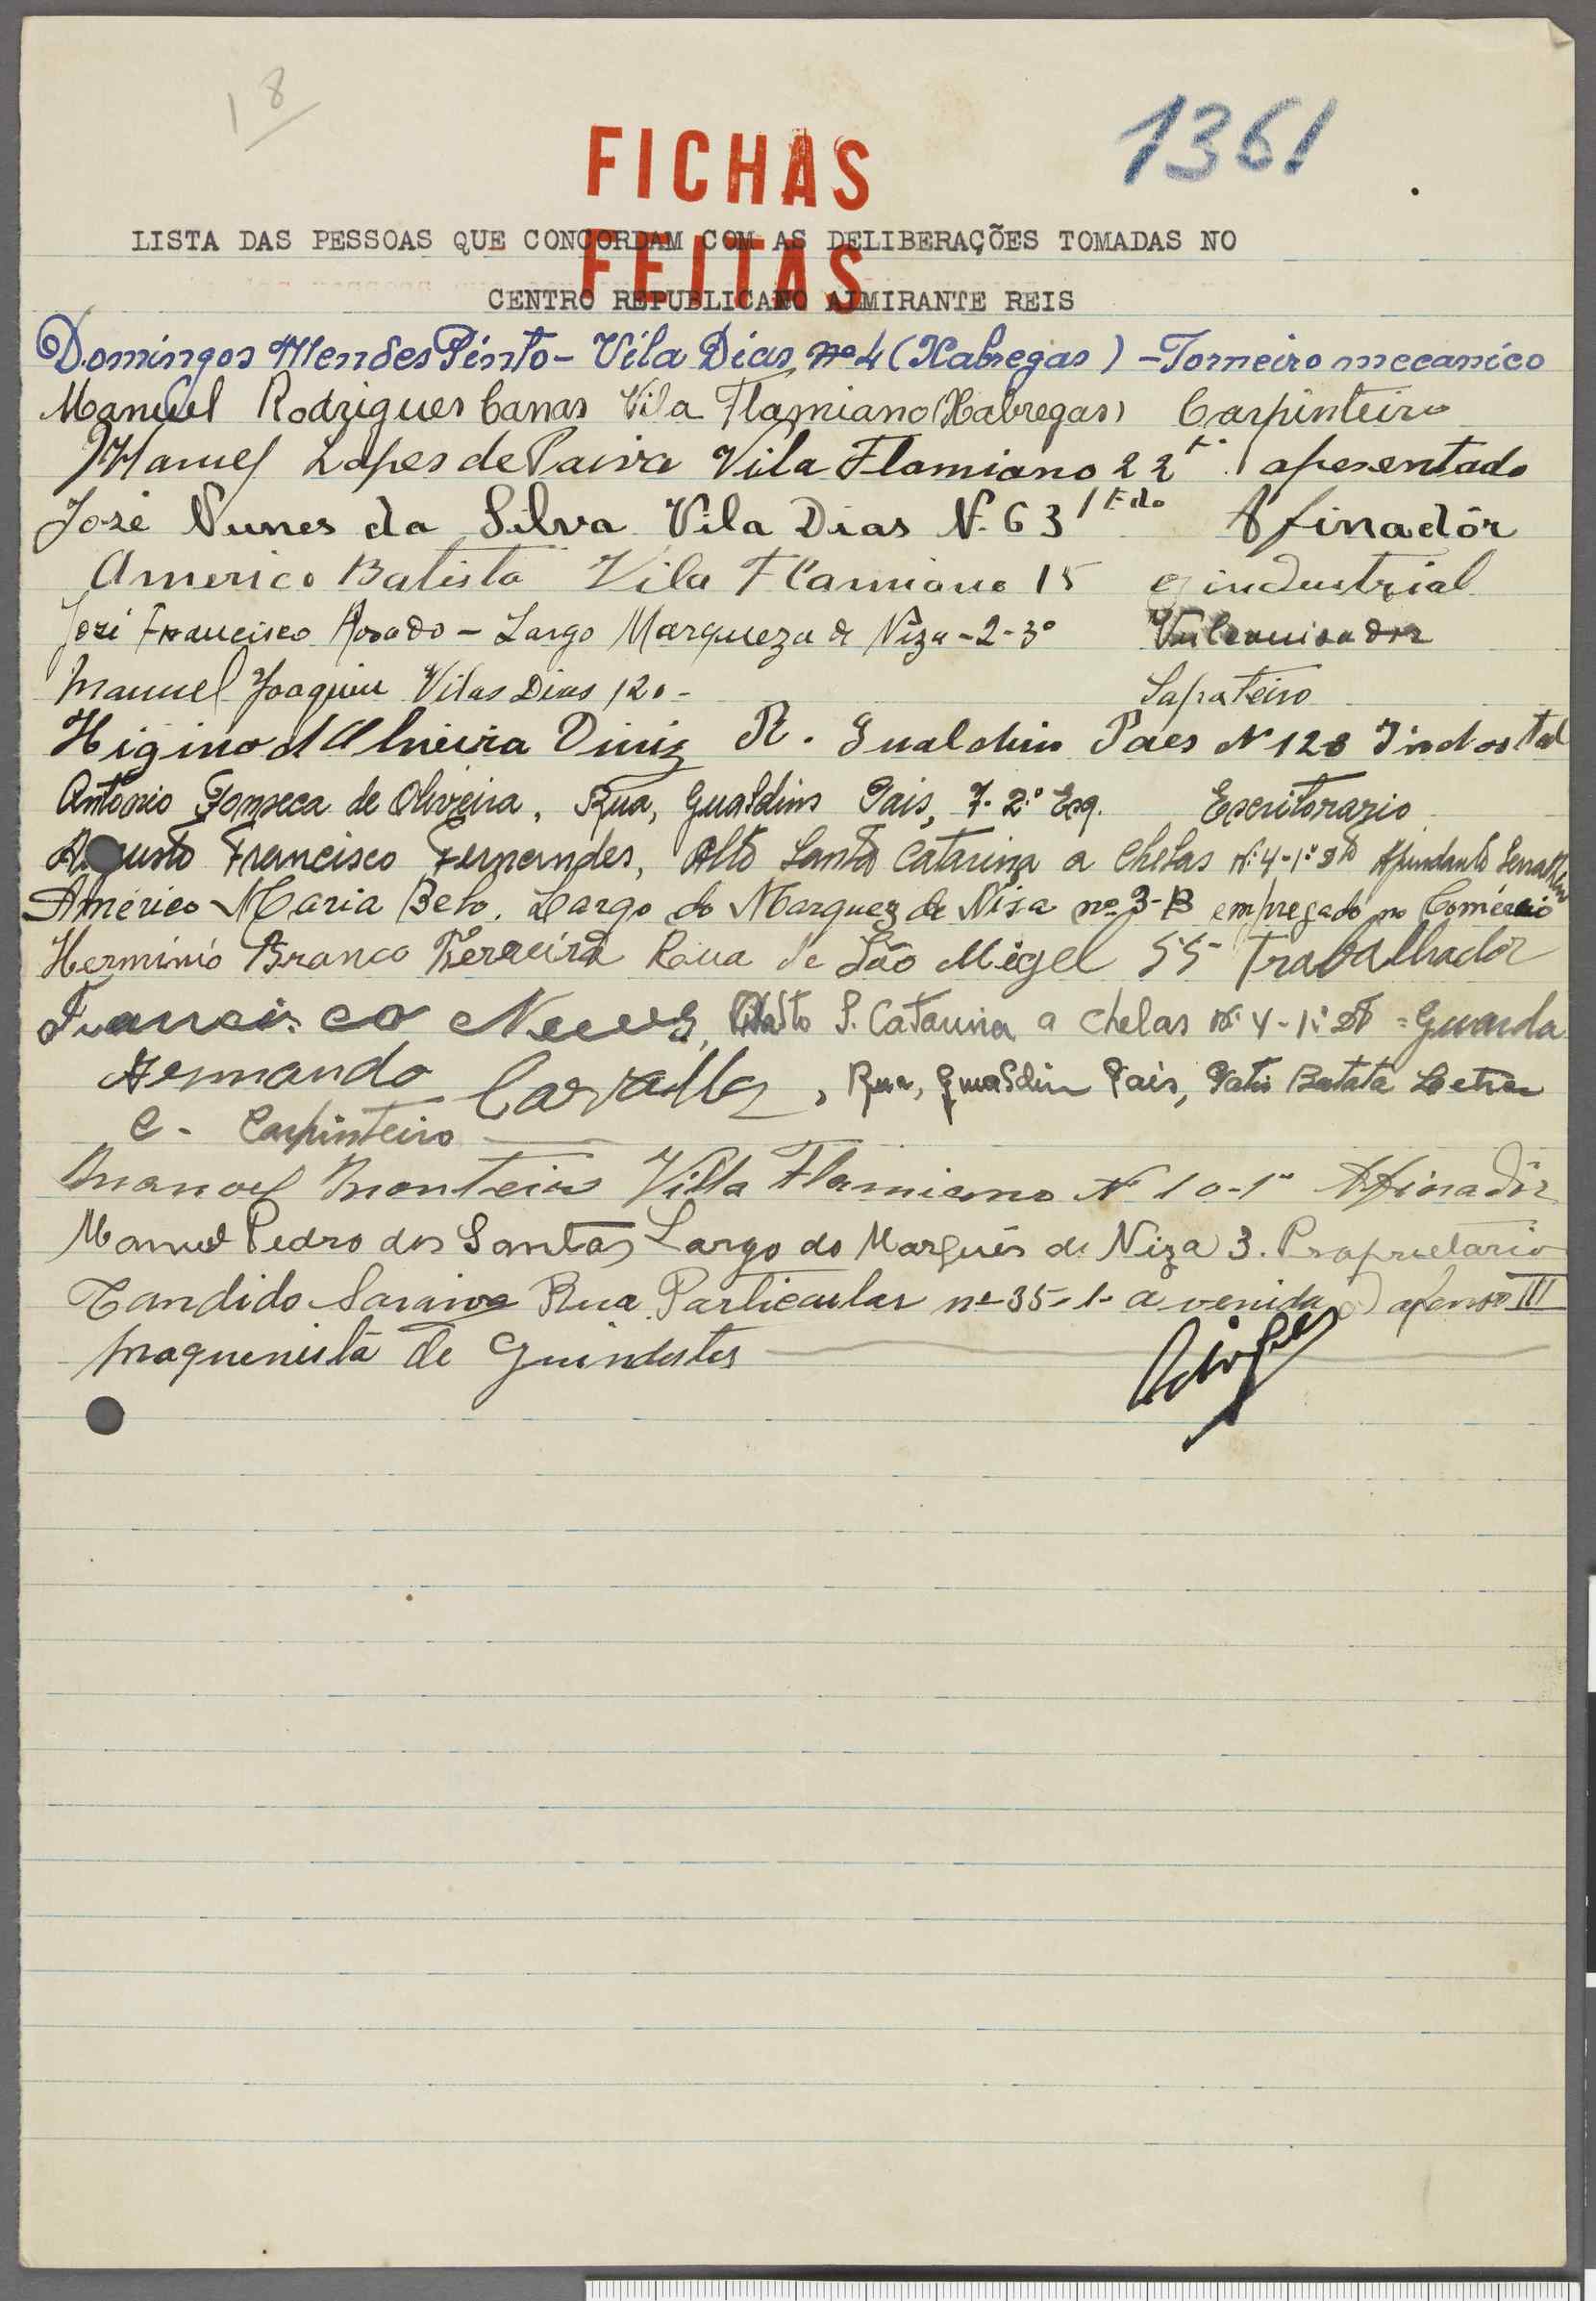 18
1361
FICHAS
LISTA DAS PESSOAS QUE CONCORDAM COM AS DELIBERAÇÕES TOMADAS NO
FEITAS
CENTRO REPUBLICANO ALMIRANTE REIS
Domingos Mendes Pinto - Vila Dias nº 4 (Xabregas) - Torneiro mecanico
Manuel Rodrigues Canas Vila Flamiano (Xabregas) Carpinteiro
Manuel Lopes de Paiva Vila Flamiano 22 apesentado
José Nunes da Silva Vila Dias N. 63 Afinadôr
Americo Batista Vila Flamiano 15 industrial
José Francisco Rosado - Largo Marqueza de Niza - 2 - 3º Vulcanisador
Manuel Joaquim Vilas Dias 120 - Sapateiro
Higino d'Almeida Diniz R. Gualdim Paes Nº 128
Antonio Fonseca de Oliveira, Rua, Gualdins Pais, 7. 2º Esq. Escritorazio
Augusto Francisco Fernandes, Alto Santa Catarina a Chelas Nº 4-1º Dtº
Américo Maria Belo. Largo do Marquez de Nisa nº 3-B empregado no Comércio
Herminio Branco Ferreira Rua de São Migel 55 Trabalhador
Francisco Neves, Alto S. Catarina a Chelas Nº 4-1º Dt = Guarda
Armando Carvalho, Rua, Gualdim Pais, Patio Batata Letra
C - Carpinteiro
Manoel Monteiro Villa Flamiano Nº 10-1º Afinadôr
Manuel Pedro dos Santos Largo do Marquês de Niza 3. Proprietario
Candido Saraiva Rua Particular nº 35-1- a venida afonso III
maquenista de Guindastes